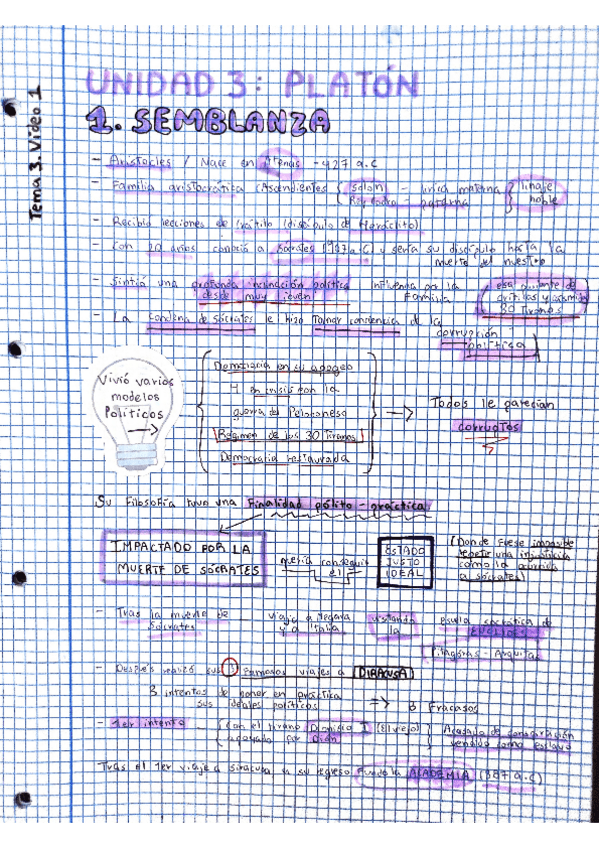 Tema 3. Video 1
UNIDAD 3: PLATÓN
1. SEMBLANZA
- Aristocles / Nace en Atenas - 427 a.C
- Familia aristocrática (Ascendientes { Solón - línea materna } linaje
paterna noble
- Recibió lecciones de Crátilo (discípulo de Heráclito)
- Con 20 años conoció a Sócrates (407 a.C) y sería su discípulo hasta la
muerte del maestro
- Sintió una profunda inclinación política influenda por la
desde muy joven familia
era pariente de
30 Tiranos
- La condena de Sócrates le hizo tomar conciencia de la
corrupción
política
Vivió varios
modelos
Políticos
Democracia en su apogeo
Y en crisis con la
guerra del Peloponeso
Régimen de los 30 Tiranos
Democracia restaurada
Todos le parecían
corruptos
Su filosofía tuvo una finalidad pólito-práctica
IMPACTADO POR LA
MUERTE DE SÓCRATES
quería conseguir
el
ESTADO
JUSTO
IDEAL
(Donde fuese imposible
repetir una injusticia
como la ocurrida
a Sócrates)
- Tras la muerte de Sócrates - viaje a Megara y a Italia visitando la escuela socrática de
EUCLIDES
Pitágoras - Arquitas
Después realizó sus 3 famosos viajes a SIRACUSA
3 intentos de poner en práctica
sus ideales políticos => 3 Fracasos
- 1er intento - (con el tirano Dionisio I (El viejo)
apoyado por Dión
Acusado de conspiración
vendido como esclavo
Tras el 1er viaje a Siracusa, a su regreso funda la ACADEMIA (387 a.C)